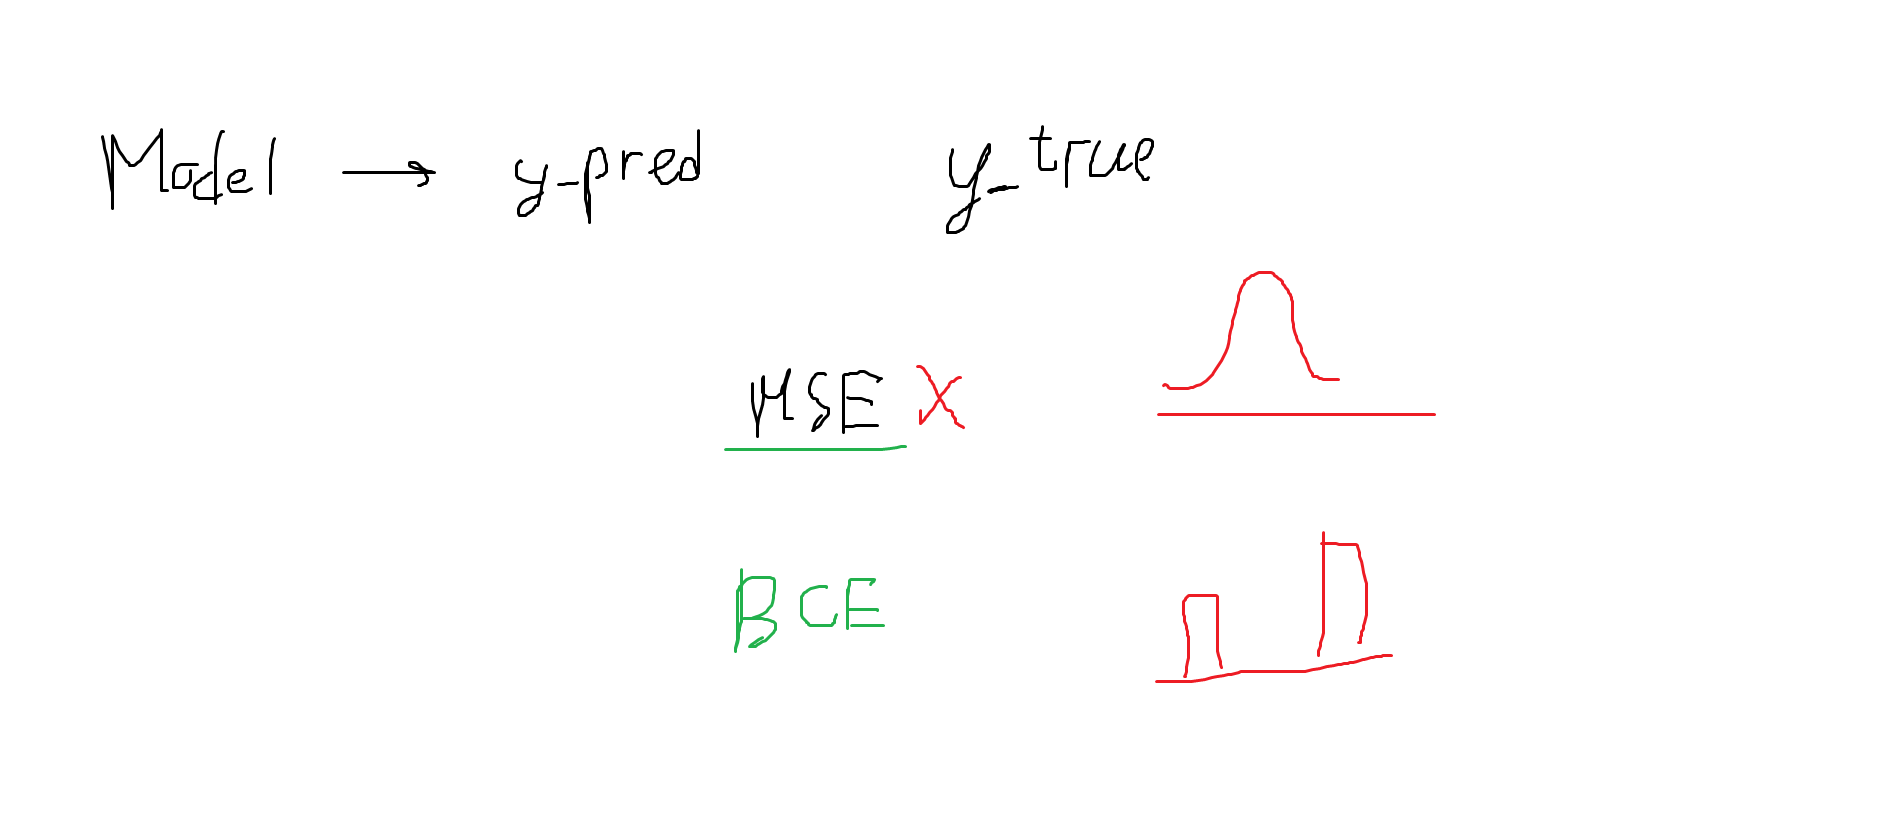 Model → y_pred y_true
MSE X
BCE